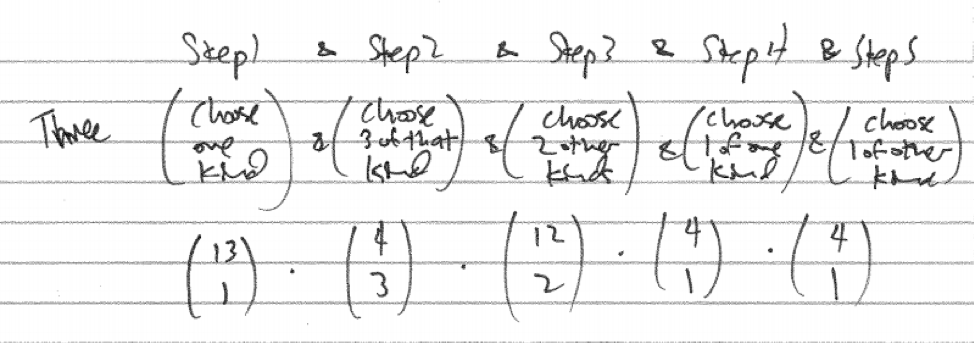 Step1 & Step2 & Step3 & Step4 & Step5
Three (choose one kind) & (choose 3 of that kind) & (choose 2 other kinds) & (choose 1 of one kind) & (choose 1 of other kind)
(13 1) · (4 3) · (12 2) · (4 1) · (4 1)